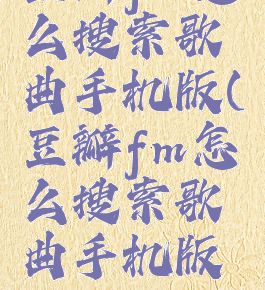 么搜索歌
曲手机版(
豆瓣fm怎
么搜索歌
曲手机版